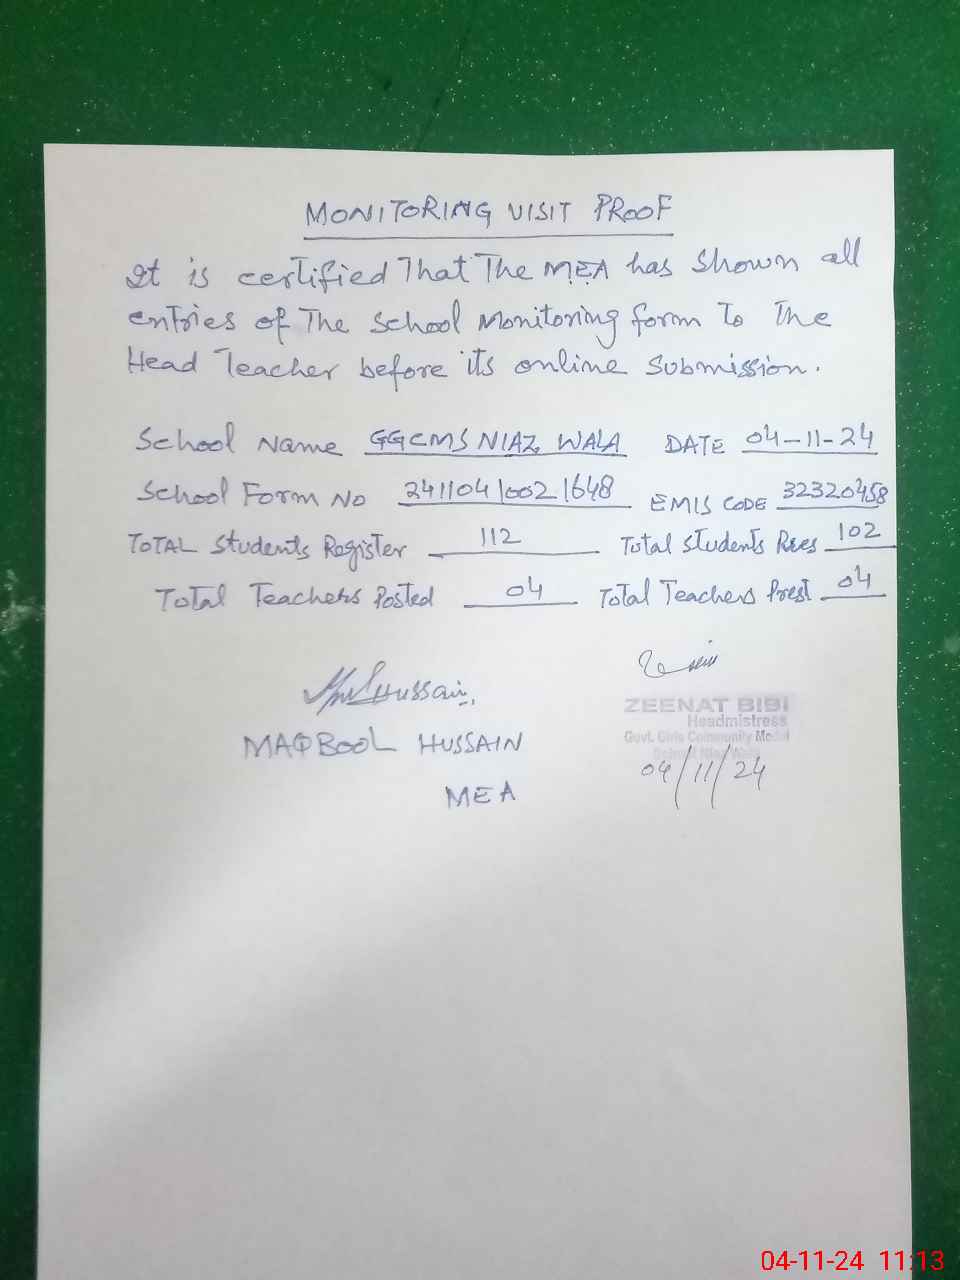 MONITORING VISIT PROOF
It is certified That The M.E.A has shown all
entries of The School Monitoring form To The
Head Teacher before its online Submission.
School Name GGCMS NIAZ WALA DATE 04-11-24
School Form No 24110410021648 EMIS CODE 32320458
TOTAL Students Register 112 Total Students Pres 102
Total Teachers Posted 04 Total Teachers Prest 04
Hussain
ZEENAT BIBI
Headmistress
Govt. Girls Community Model
School Niaz Wala
MAQBOOL HUSSAIN
04/11/24
MEA
04-11-24 11:13